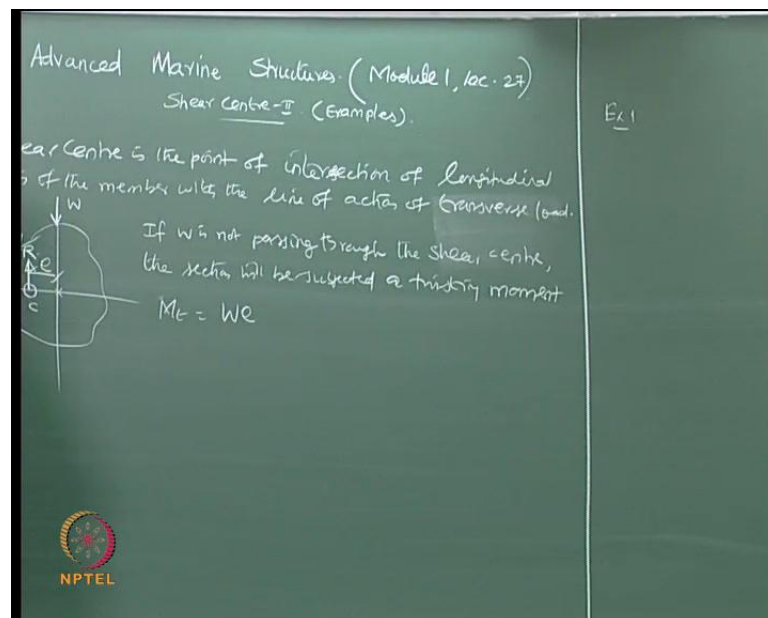 Advanced Marine Structures. (Module 1, lec. 27)
Shear Centre-II (Examples).
ear Centre is the point of intersection of longitudinal
s of the member with the line of action of transverse load.
W
If W is not passing through the shear centre,
the section will be subjected a twisting moment
R
e
C
Mt = We
Ex 1
NPTEL